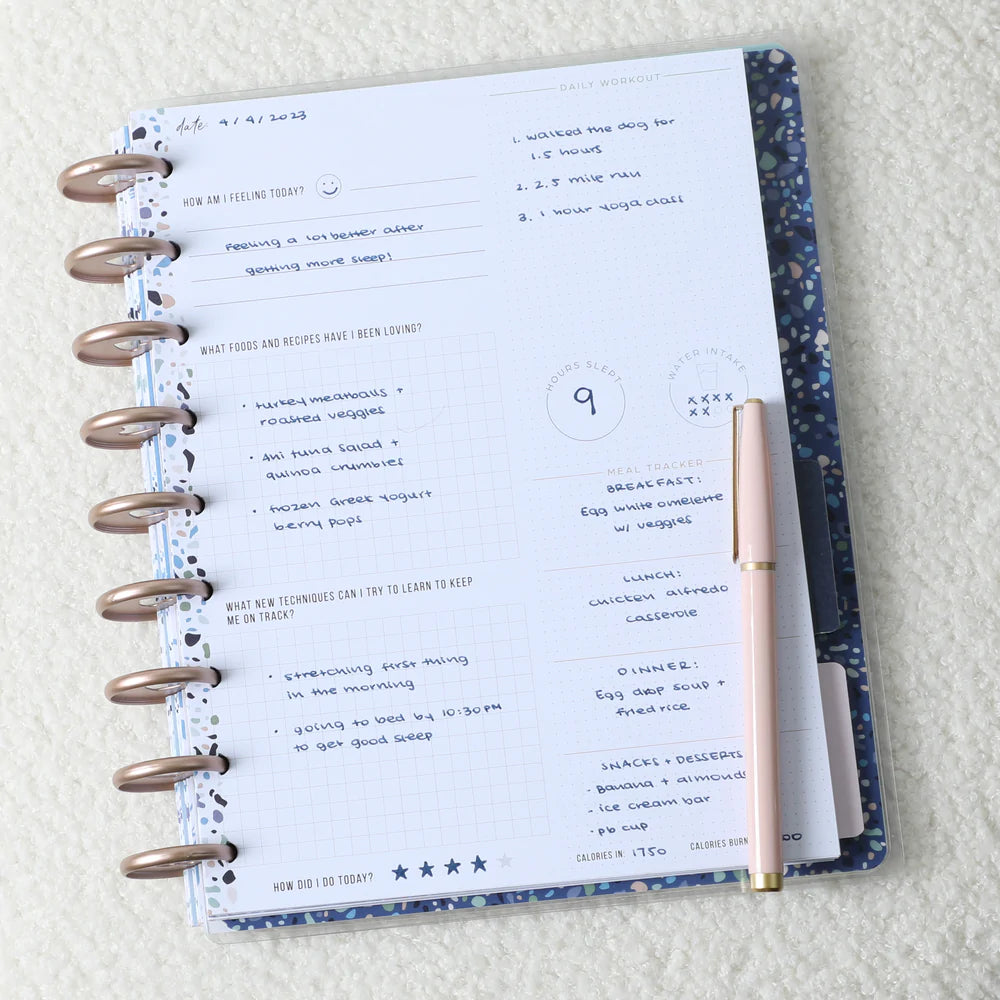 date: 4/4/2023
HOW AM I FEELING TODAY?
Feeling a lot better after
getting more sleep!
WHAT FOODS AND RECIPES HAVE I BEEN LOVING?
• turkey meatballs +
roasted veggies
• Ahi tuna salad +
quinoa crumbles
• frozen Greek yogurt
berry pops
WHAT NEW TECHNIQUES CAN I TRY TO LEARN TO KEEP
ME ON TRACK?
• stretching first thing
in the morning
• going to bed by 10:30 PM
to get good sleep
HOW DID I DO TODAY?
DAILY WORKOUT
1. walked the dog for
1.5 hours
2. 2.5 mile run
3. 1 hour yoga class
HOURS SLEPT
9
WATER INTAKE
xxxx
xx
MEAL TRACKER
BREAKFAST:
Egg white omelette
w/ veggies
LUNCH:
chicken alfredo
casserole
DINNER:
Egg drop soup +
fried rice
SNACKS + DESSERTS
- Banana + almonds
- ice cream bar
- pb cup
CALORIES IN: 1750 CALORIES BURN